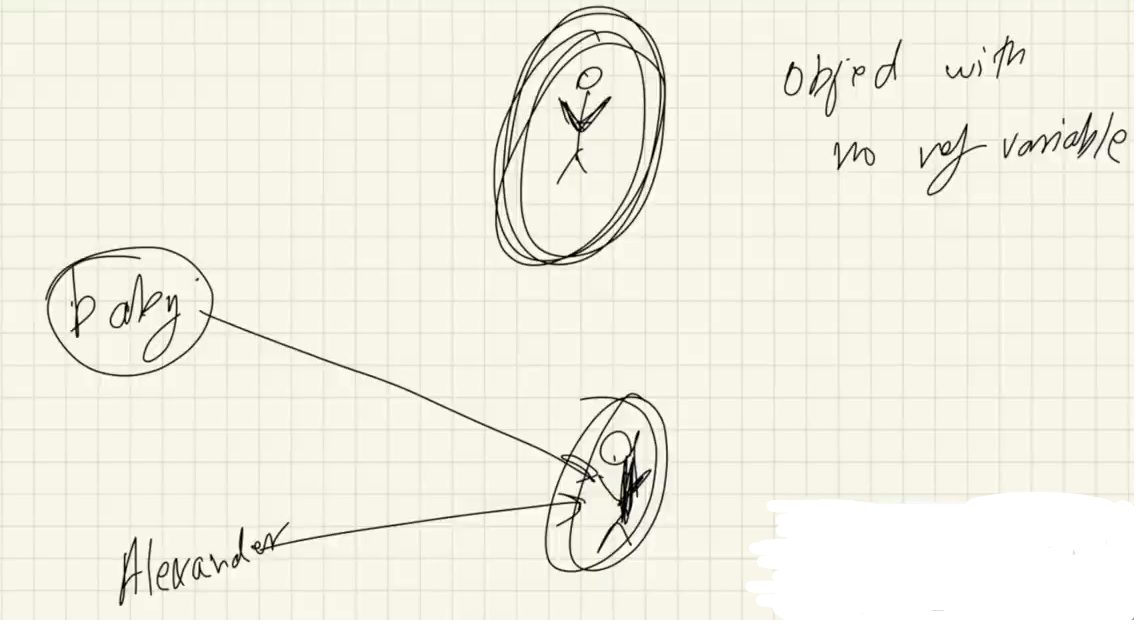 object with
no ref variable
baby
Alexander